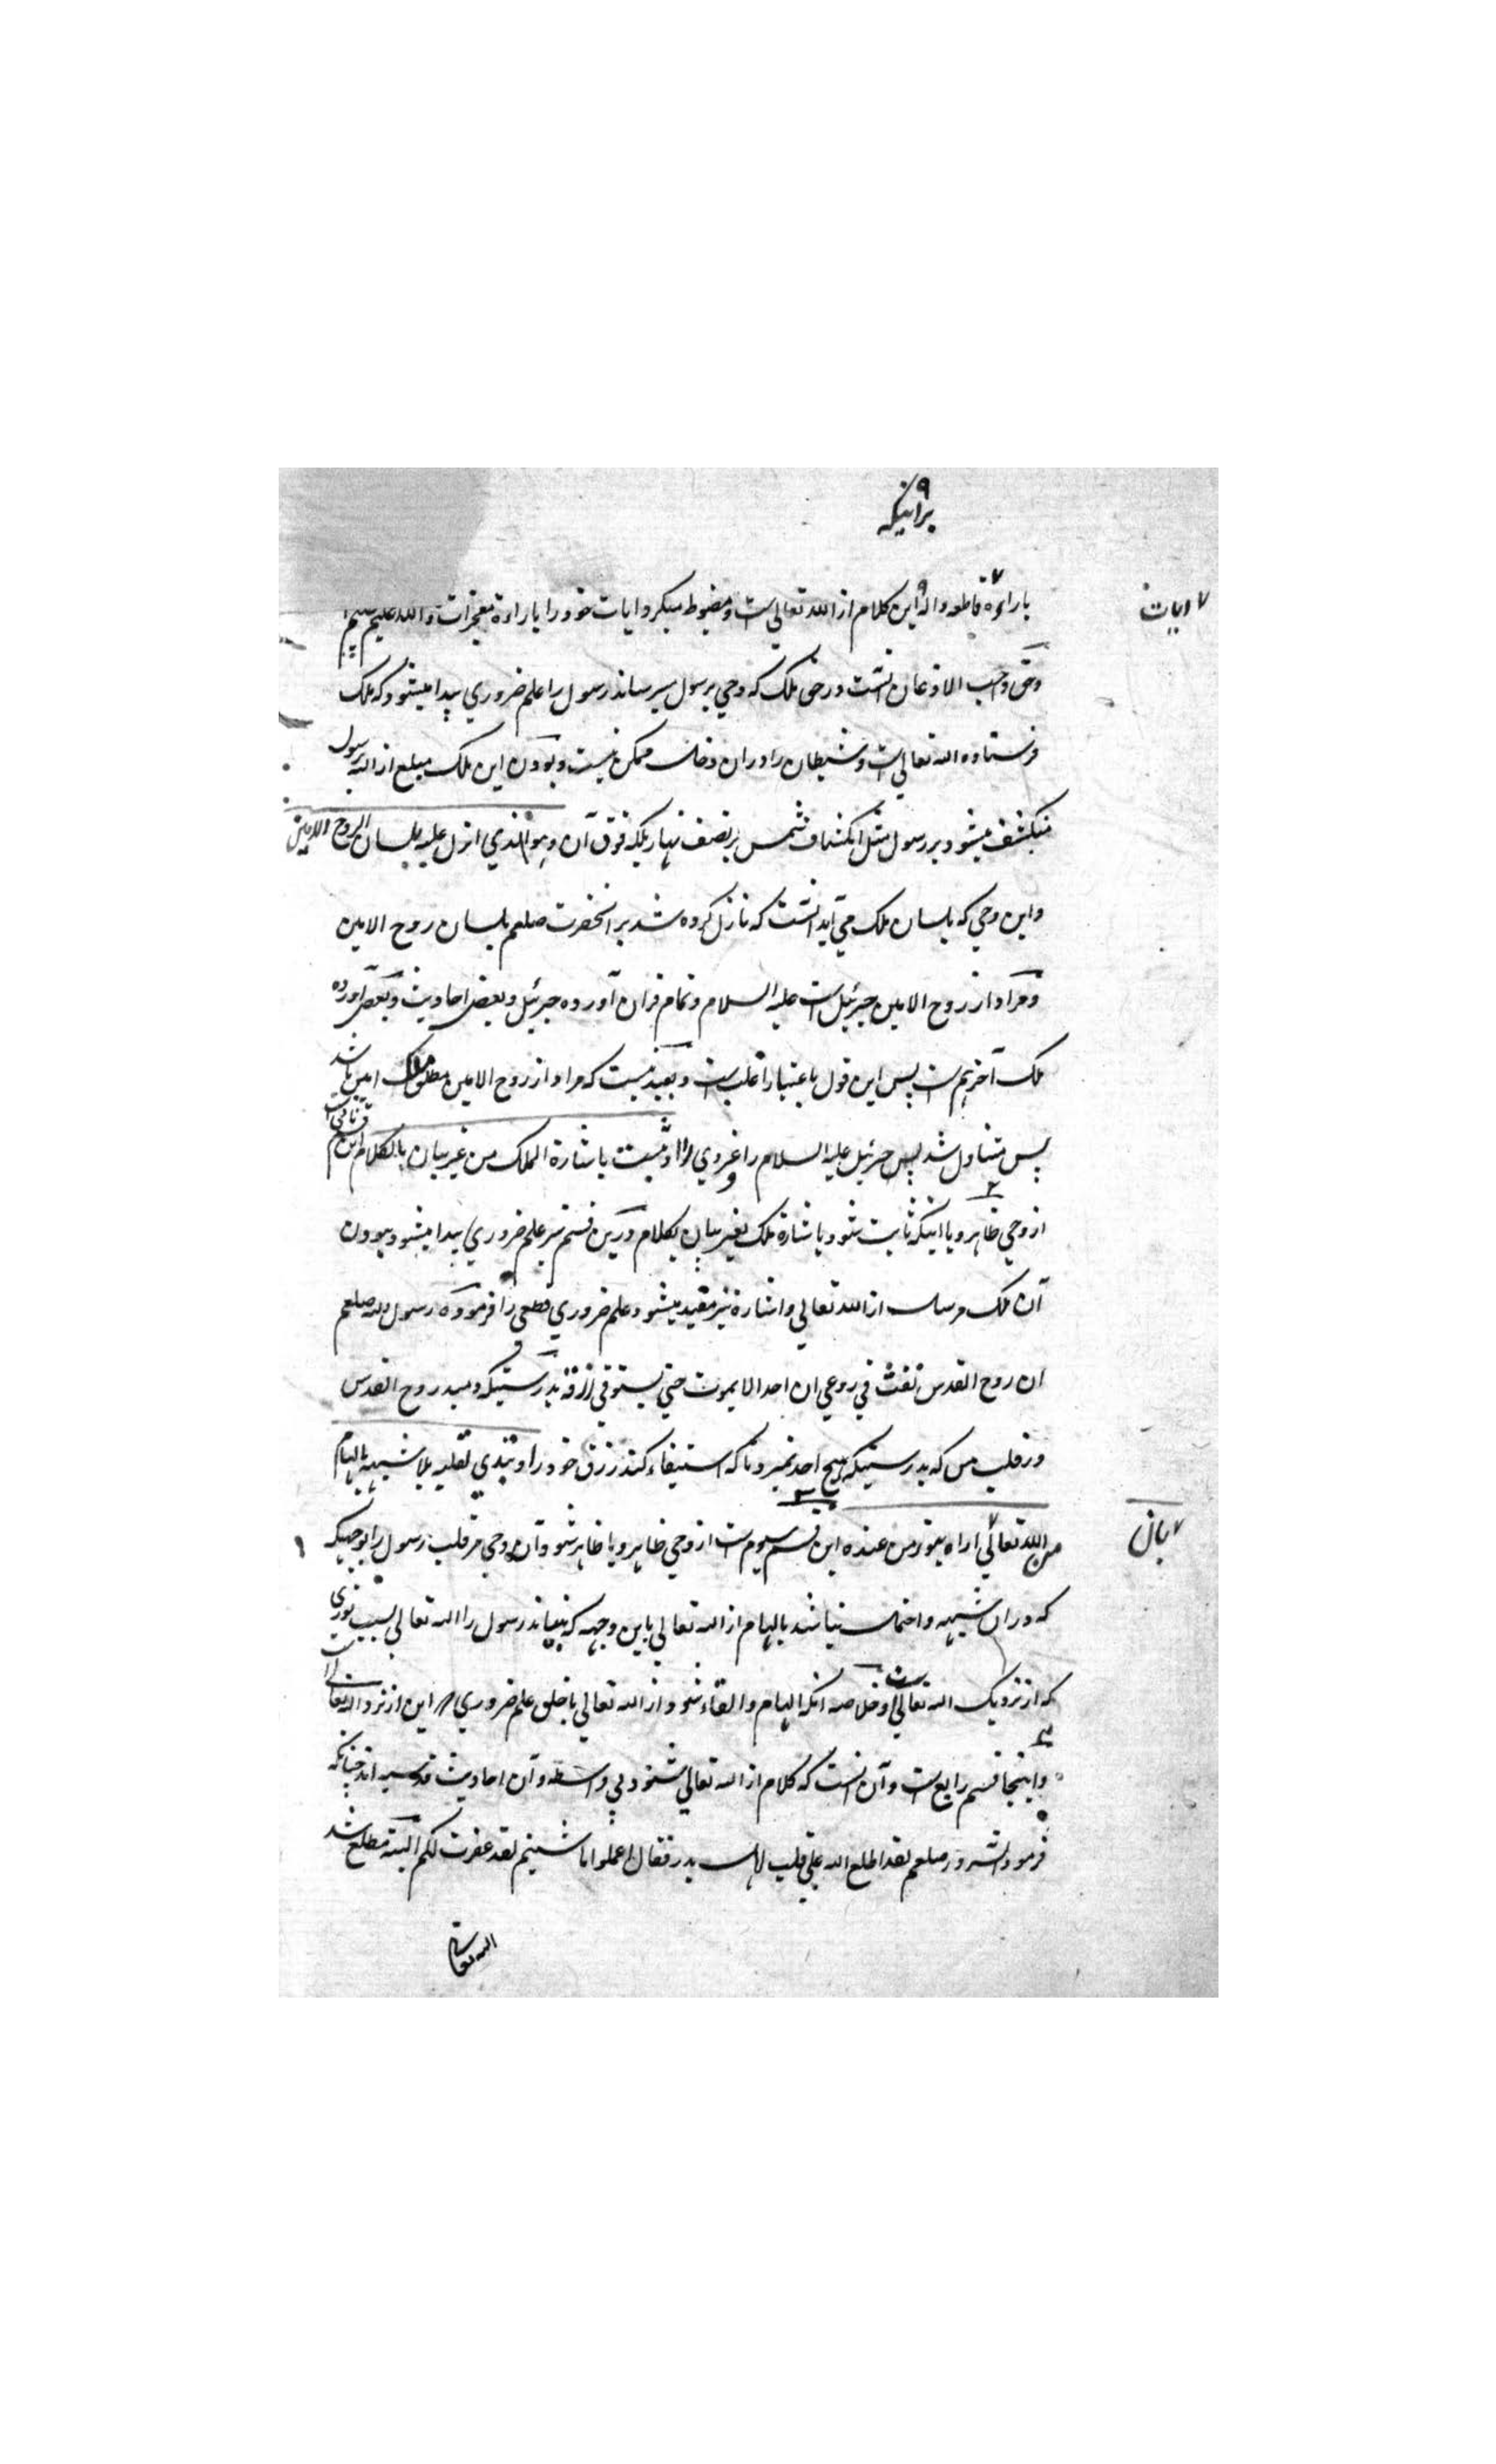 برانیکه
بارادۀ قاطعه واله این کلام از الله تعالی است و مضبوط میکرد ایات خود را بارادۀ معجزات والله علیم
ایات
وحق واجب الاذعان انست در حق ملک که وحی برسول میرساند رسول را علم ضروری پیدا میشود که ملک
فرستاده الله تعالی است و شیطان را دران دخلے ممکن نیست و بودن این ملک مبلغ از الله برسول
منکشف میشود بر رسول مثل انکشاف شمس بر نصف نهار بلکه فوق آن وهو الذی انزل علیه بلسان الروح الامین
واین وحی که بلسان ملک می آید انست که نازل کرده شد بر انحضرت صلعم بلسان روح الامین
ومراد از روح الامین جبرئیل است علیه السلام و تمام قران آورده جبرئیل و بعض احادیث و بعض آورده
ملک آخر هم است پس این قول باعتبار اغلب است و بعید نیست که مراد از روح الامین مطلق ملک امین باشد
پس متناول شد پس جبرئیل علیه السلام را و غیروی را او ثبت باشارة الملک من غیر بیان بالکلام این قسم ثانی است
از وحی ظاهر و یا اینکه ثابت شود باشارۀ ملک بغیر بیان بکلام و درین قسم نیز علم ضروری پیدا میشود ببودن
آن ملک مرسل از الله تعالی و اشارۀ نیز مفید میشود علم ضروری قطعی را فرموده رسول الله صلعم
ان روح القدس نفث فی روعی ان احدا لا یموت حتی یستوفی رزقه بدرستیکه دمید روح القدس
در قلب من که بدرستیکه هیچ احد نمیرد تا که استیفاء کند رزق خود را و تبدی لقلبه بلا شبهة بالهام
من الله تعالی اراه بنور من عنده این قسم سیوم است از وحی ظاهر و یا ظاهر شود آن وحی مر قلب رسول را بوجهیکه
بان
که دران شبهه و احتمال نباشد بالهام از الله تعالی باین وجهه که بنماید رسول را الله تعالی بسبب نوری
که از نزدیک الله تعالی است و خلاصه انکه الهام و القاء شود از الله تعالی با خلق علم ضروری که این از نزد الله تعالی است
و اینجا قسم رابع است و آن انست که کلام از الله تعالی شنود بی واسطه و آن احادیث قدسیه اند چنانکه
فرمود انسرور صلعم لقد اطلع الله علی قلب اهل بدر فقال اعملوا ما شئتم لقد غفرت لکم البته مطلع شد
الله تعالی